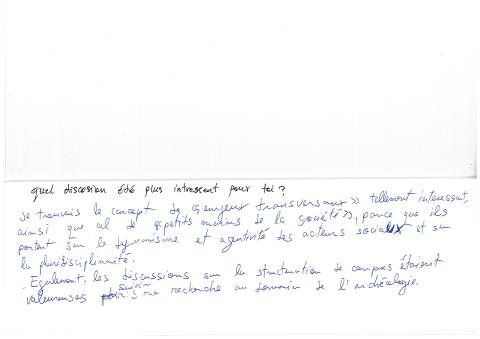 quel discosion été plus intressent pour toi ?
Je trouvais le concept de « enjeux transversaux » tellement interessant,
ainsi que al de « petits mains de la société », parce que ils
portent sur le dynamisme et agentivité des acteurs sociaux et sur
la pluridisciplinaité.
Egalement, les discussions sur la structuration de corpus étaient
valeureuses ma recherche au domain de l'archéologie.